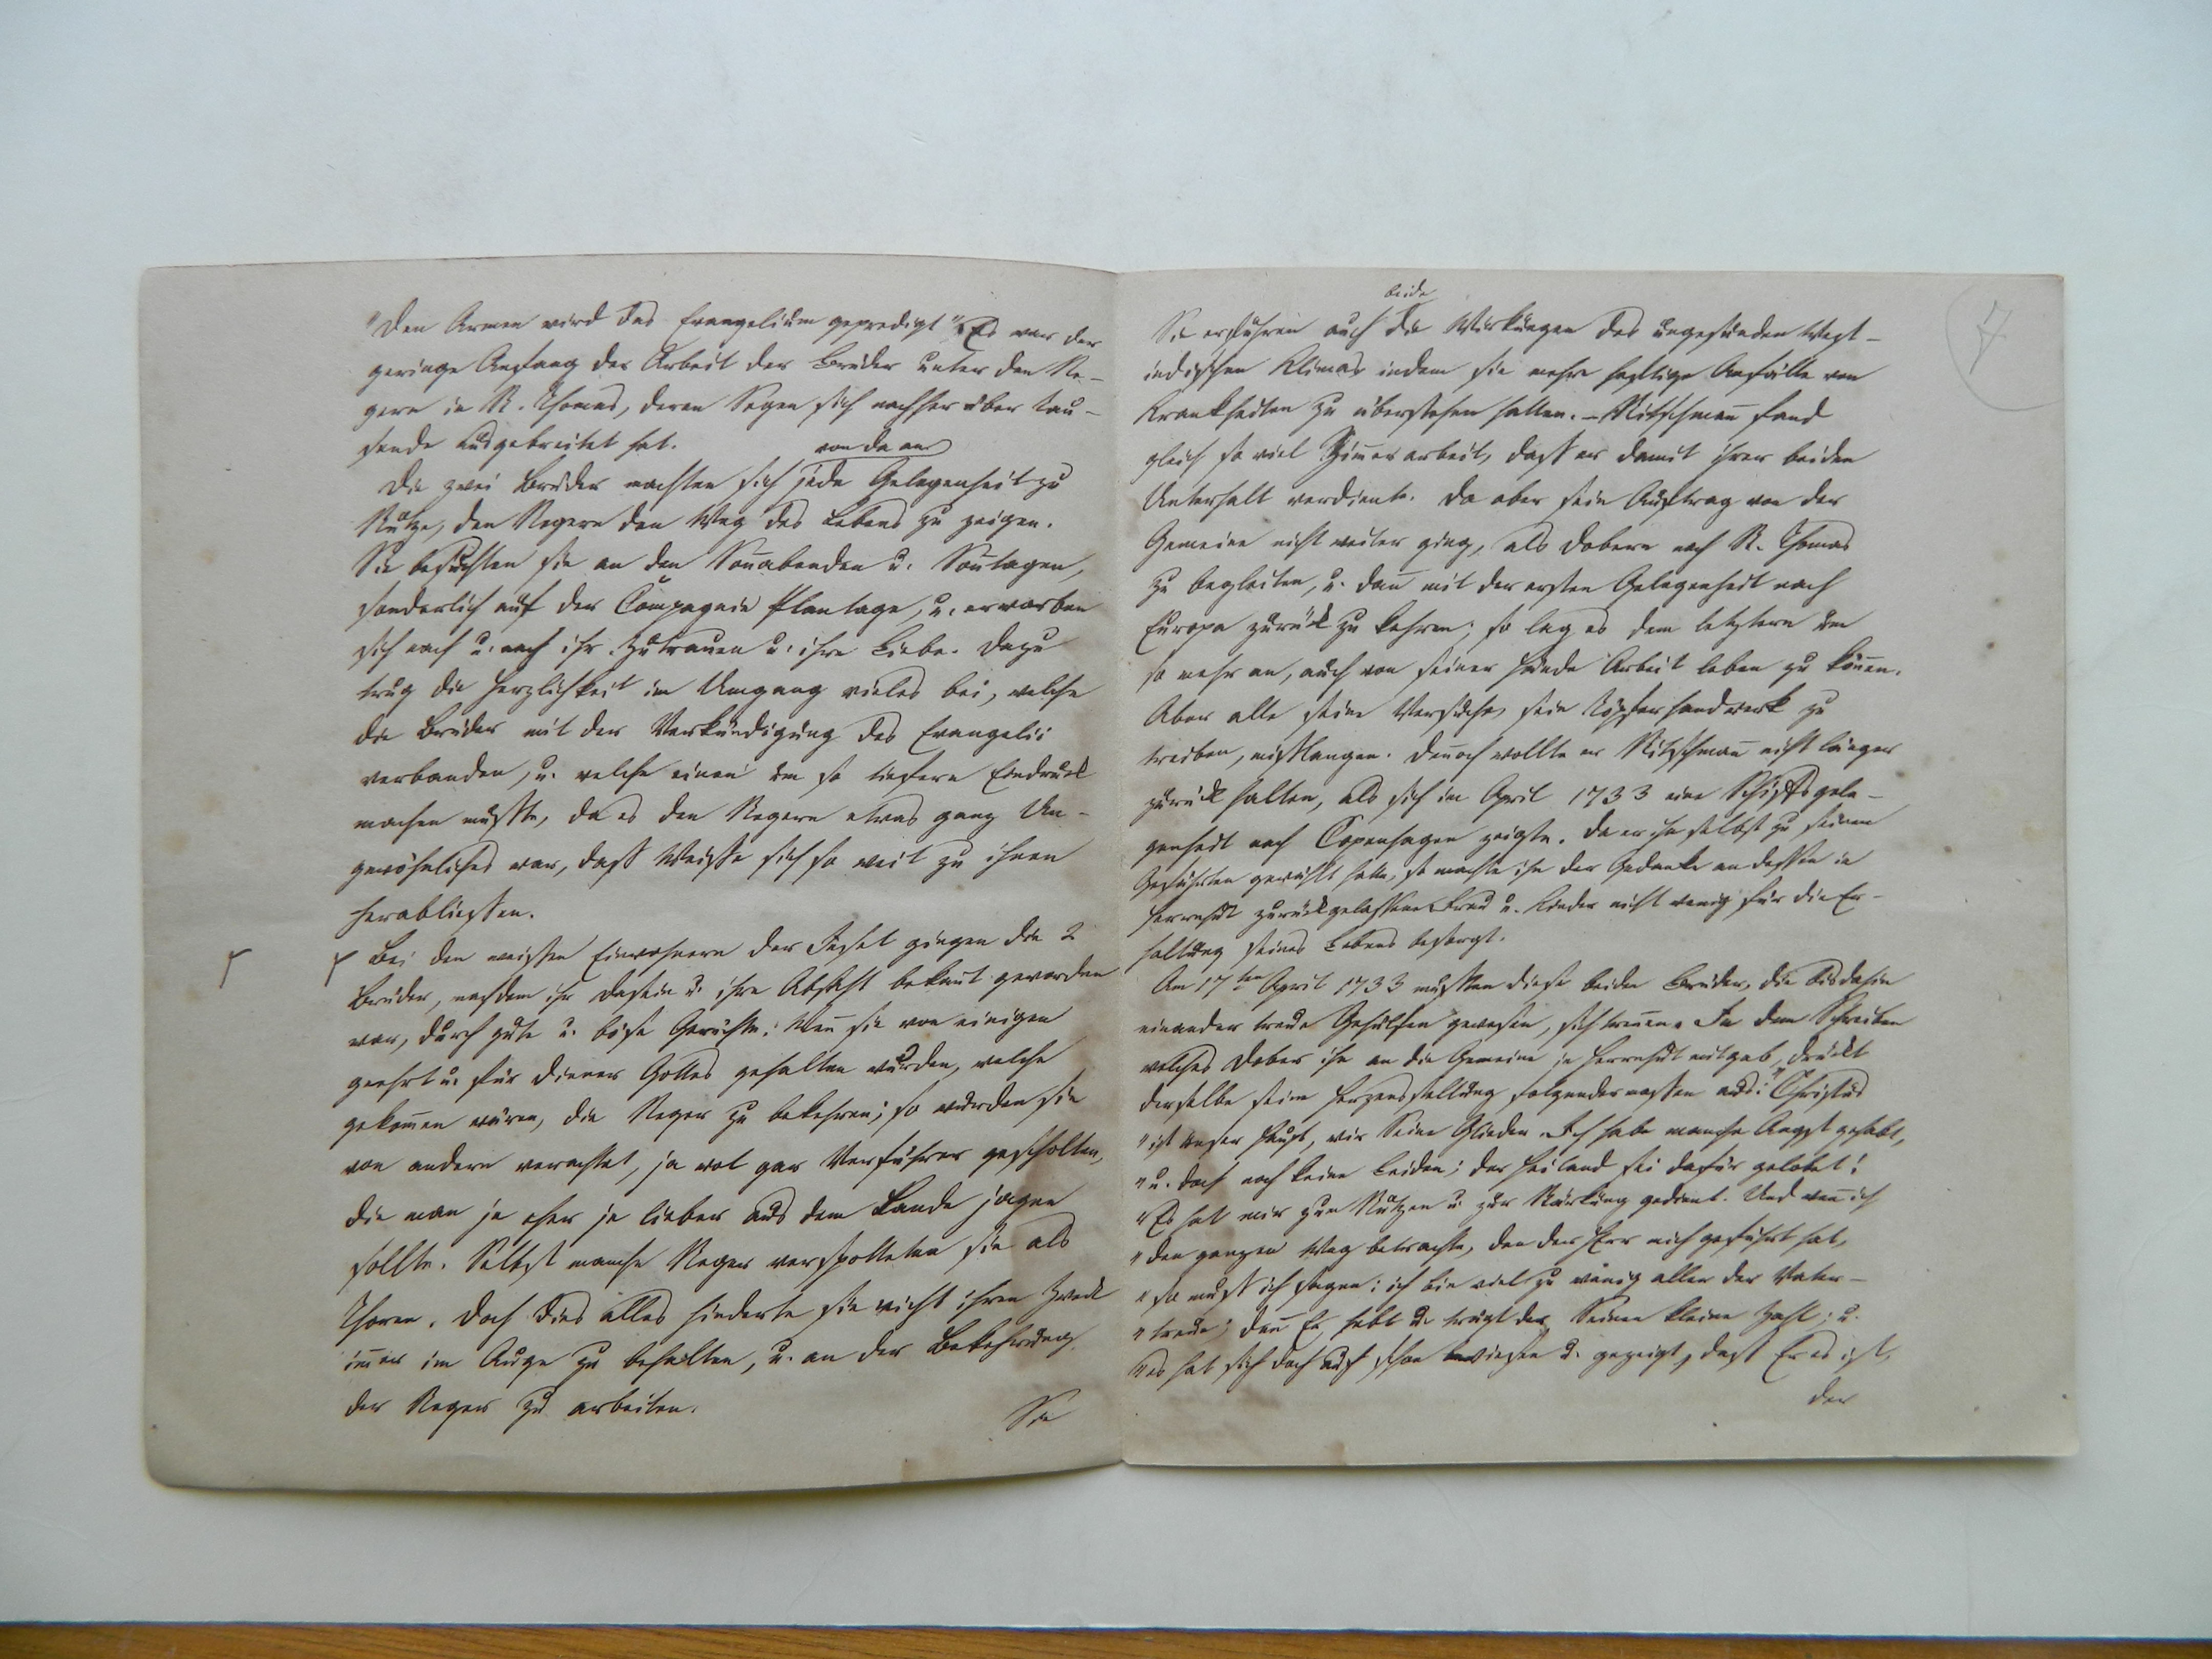 "Den Armen wird das Evangelium gepredigt". Es war der
geringe Anfang der Arbeit der Brüder unter den Ne-
gern in St. Thomas, deren Segen sich nachher über tau-
sende ausgebreitet hat.
von da an
Die zwei Brüder machten sich jede Gelegenheit zu
Nutze, den Negern den Weg des Lebens zu zeigen.
Sie besuchten sie an den Soñabenden u. Soñtagen,
sonderlich auf der Compagnie Plantage, u. erwarben
sich nach u. nach ihr Zutrauen u. ihre Liebe. Dazu
trug die Herzlichkeit im Umgang vieles bei, welche
die Brüder mit der Verkündigung des Evangelii
verbanden, u. welche einen um so tiefern Eindruck
machen mußte, da es den Negern etwas ganz Un-
gewöhnliches war, daß Weiße sich so weit zu ihnen
herabließen.
Bei den weißen Einwohnern der Insel gingen die 2
Brüder, nachdem ihr Dasein u. ihre Absicht bekañt geworden
war, durch gute u. böse Gerüchte. Weñ sie von einigen
geehrt u. für Diener Gottes gehalten wurden, welche
gekom̃en wären, die Neger zu bekehren; so wurden sie
von andern verachtet, ja wol gar Verführer gescholten,
die man je eher je lieber aus dem Lande jagen
sollte. Selbst manche Neger verspotteten sie als
Thoren. Doch dies alles hinderte sie nicht ihren Zweck
im̃er im Auge zu behalten, u. an der Bekehrung
der Neger zu arbeiten.
Sie
7
beide
Sie erfuhren auch die Wirkungen des ungesunden West-
indischen Klimas indem sie mehre heftige Anfälle von
Krankheiten zu überstehen hatten. - Nitschmañ fand
gleich so viel Zim̃erarbeit, daß er damit ihrer beiden
Unterhalt verdiente. Da aber sein Auftrag von der
Gemeine nicht weiter ging, als Dobern nach St. Thomas
zu begleiten, u. dañ mit der ersten Gelegenheit nach
Europa zurück zu kehren; so lag es dem letztern um
so mehr an, auch von seiner Hände Arbeit leben zu köñen.
Aber alle seine Versuche, sein Töpferhandwerk zu
treiben, mißlangen. Deñoch wollte er Nitschmañ nicht länger
zurück halten, als sich im April 1733 eine Schiffsgele-
genheit nach Copenhagen zeigte. Da er ihn selbst zu seinem
Gefährten gewählt hatte, so machte ihn der Gedanke an dessen in
Herrnhut zurückgelassene Frau u. Kinder nicht wenig für die Er-
haltung seines Lebens besorgt.
Am 17ten April 1733 mußten diese beiden Brüder, die bis dahin
einander treue Gehülfen gewesen, sich treñen. In dem Schreiben
welches Dober ihm an die Gemeine in Herrnhut mitgab, drückt
derselbe seine Herzensstellung folgendermaßen aus: "Christus
"ist unser Haupt, wir Seine Glieder. Ich habe manche Angst gehabt,
"u. doch noch keine Leiden; der Heiland sei dafür gelobet!
"Es hat mir zum Nutzen u. zur Stärkung gedient. Und weñ ich
"den ganzen Weg betrachte, den der Herr mich geführt hat,
"so muß ich sagen: ich bin viel zu wenig aller der Vater-
"treue; deñ Er hebt u. trägt der Seinen kleine Zahl; u.
"es hat sich doch auch schon bewiesen u. gezeigt, daß Er es ist,
der